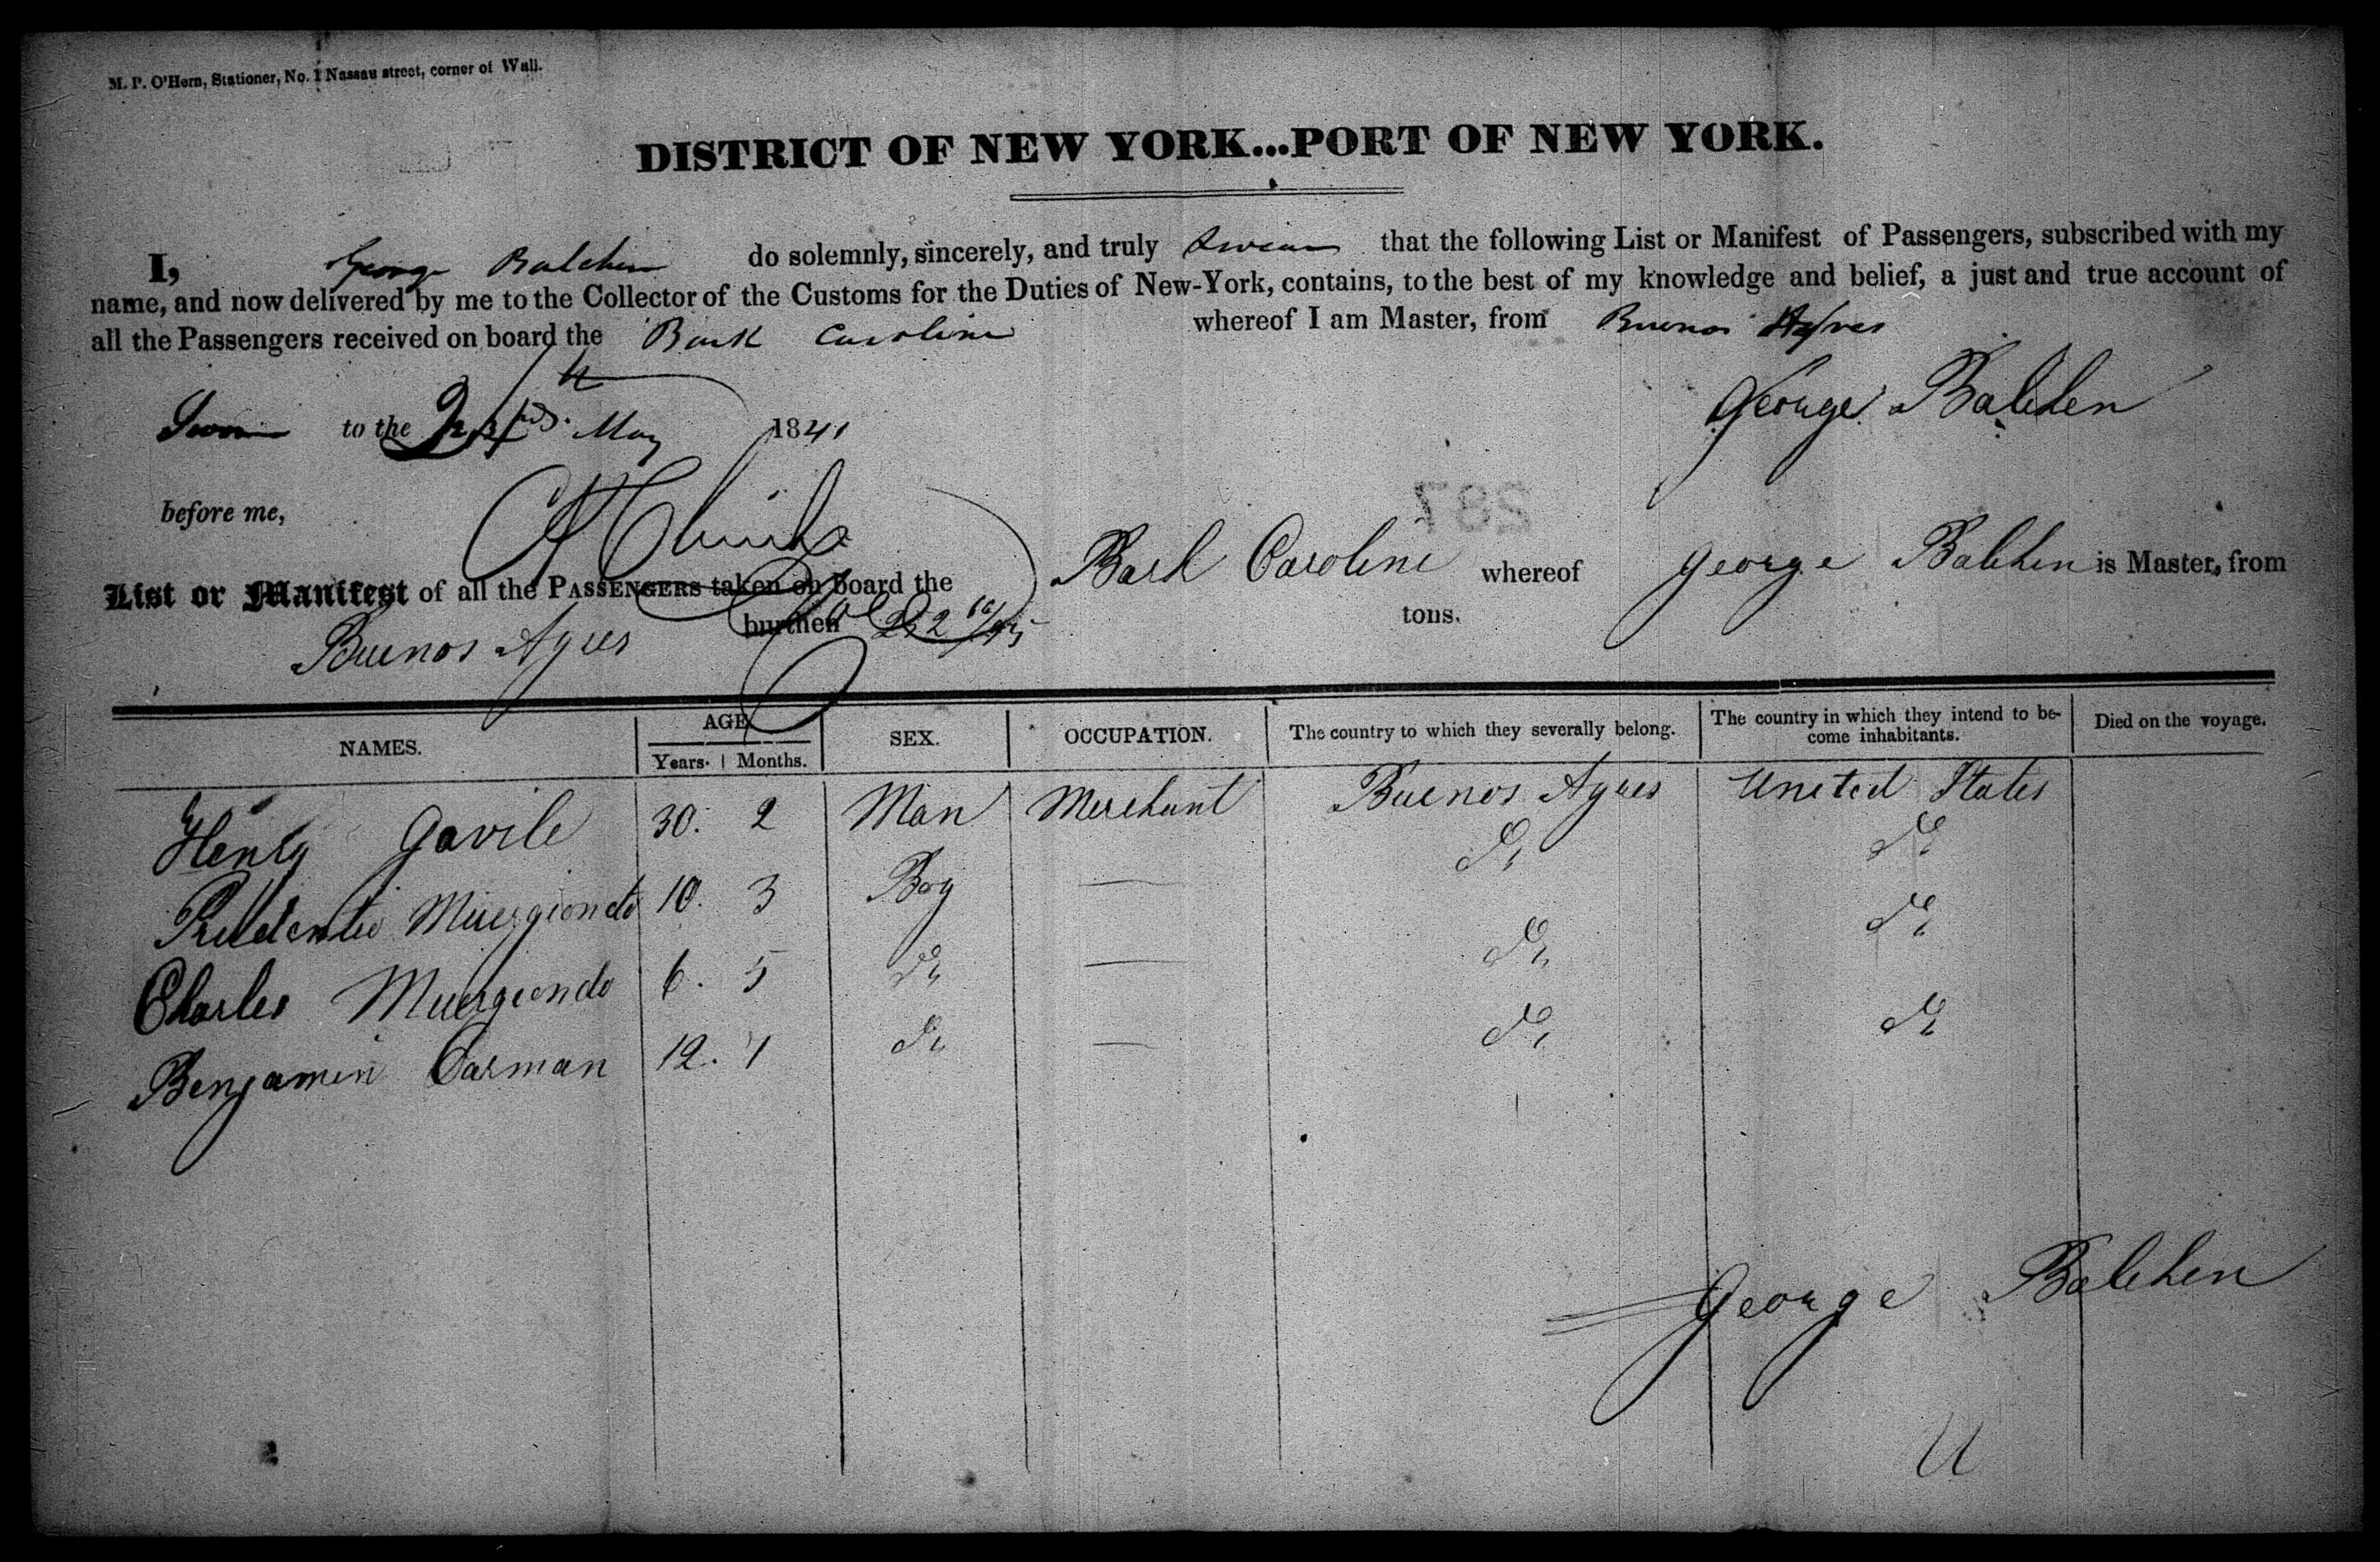 M. P. O'Hern, Stationer, No. 1 Nassau street, corner of Wall.
DISTRICT OF NEW YORK...PORT OF NEW YORK.
I, George Balchen do solemnly, sincerely, and truly swear that the following List or Manifest of Passengers, subscribed with my
name, and now delivered by me to the Collector of the Customs for the Duties of New-York, contains, to the best of my knowledge and belief, a just and true account of
all the Passengers received on board the Bark Caroline whereof I am Master, from Buenos Ayres
Sworn to the May 1841 George Balchen
before me,
287
List or Manifest of all the PASSENGERS taken on board the Bark Caroline whereof George Balchen is Master, from
Buenos Ayres burthen 252 tons.
NAMES. AGE. SEX. OCCUPATION. The country to which they severally belong. The country in which they intend to be- Died on the voyage.
Years. Months. come inhabitants.
Henry Gavile 30. 2 Man Merchant Buenos Ayres United States
10. 3 Boy — Do Do
Charles 6. 5 Do — Do Do
Benjamin Carman 12. 1 Do — Do Do
George Balchen
U